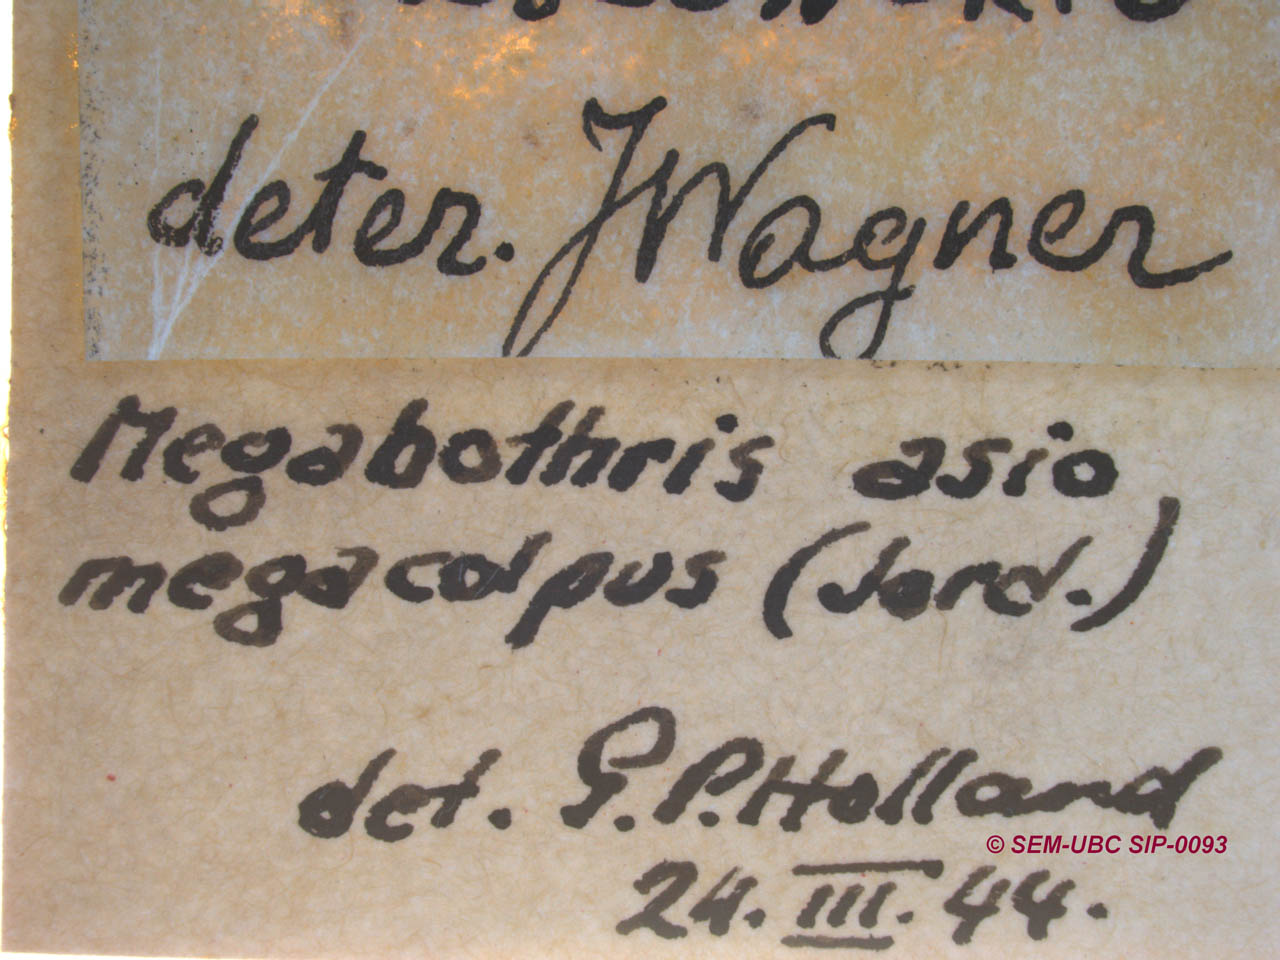 deter. JWagner
Megabothris asio
megacolpus (Jord.)
det. G.P. Holland
© SEM-UBC SIP-0093
24. III. 44.